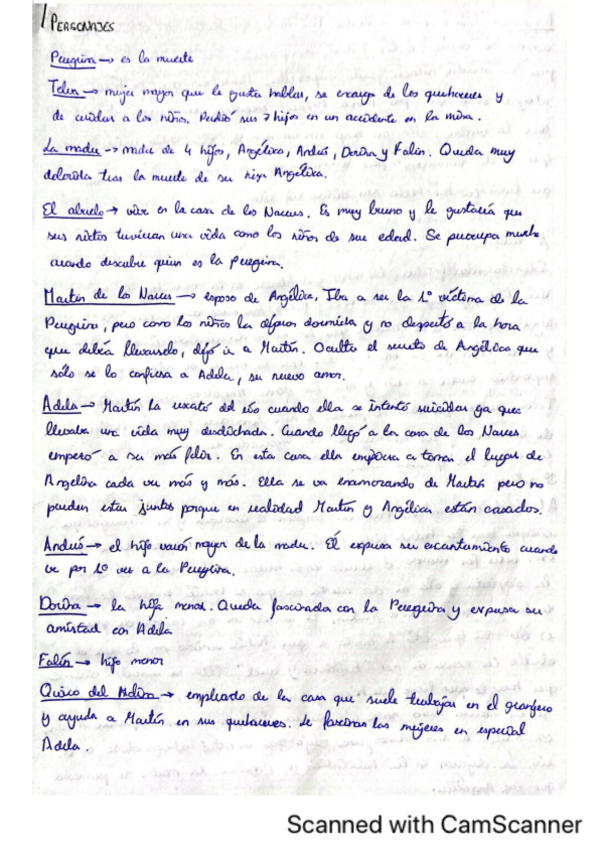 1 PERSONAJES
Peregrina → es la muerte
Telva → mujer mayor que le gusta hablar, se encarga de los quehaceres y
de cuidar a los niños. Perdió sus 7 hijos en un accidente en la mina.
La madre → madre de 4 hijos, Angélica, Andrés, Dorina y Falín. Queda muy
dolorida tras la muerte de su hija Angélica.
El abuelo → vive en la casa de los Narces. Es muy bueno y le gustaría que
sus nietos tuvieran una vida como los niños de su edad. Se preocupa mucho
cuando descubre quien es la Peregrina.
Martín de los Narces → esposo de Angélica, Iba a ser la 1º víctima de la
Peregrina, pero como los niños la dejaron dormida y no despertó a la hora
que debía llevarselo, dejó ir a Martín. Oculta el secreto de Angélica que
sólo se lo confiesa a Adela, su nuevo amor.
Adela → Martín la rescató del río cuando ella se intentó suicidar ya que
llevaba una vida muy desdichada. Cuando llegó a la casa de los Narces
empezó a ser más feliz. En esta casa ella empieza a tomar el lugar de
Angelica cada vez más y más. Ella se va enamorando de Martín pero no
pueden estar juntos porque en realidad Martín y Angélica están casados.
Andrés → el hijo varón mayor de la madre. Él expresa su encantamiento cuando
ve por 1º vez a la Peregrina.
Dorina → la hija menor. Queda fascinada con la Peregrina y expresa su
amistad con Adela
Falín → hijo menor
Quico del Molino → empleado de la casa que suele trabajar en el granjero
y ayuda a Martín en sus quehaceres. le fascinan las mujeres en especial
Adela.
Scanned with CamScanner